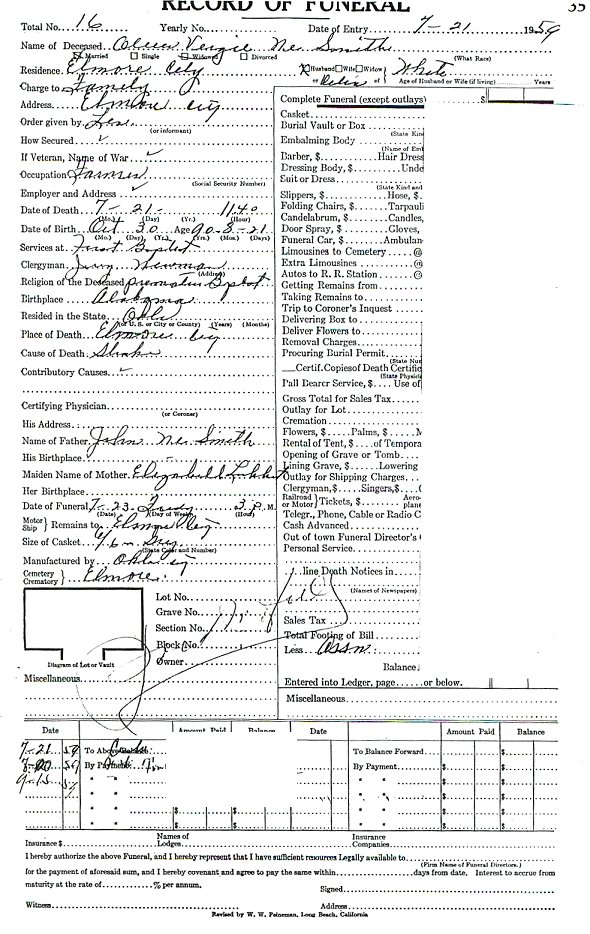 RECORD OF FUNERAL
35
Total No. 16 Yearly No. Date of Entry 7-21 1959
Name of Deceased Vergie Mc Smith
(What Race)
Married Single Widowed Divorced
Residence Elmore City Husband Wife Widow } White
or of Age of Husband or Wife (if living) Years
Charge to Family
Address Elmore City
Order given by Les
(or informant)
How Secured
If Veteran, Name of War
Occupation Farmer
(Social Security Number)
Employer and Address
Date of Death 7-21- 11:40
(Mo.) (Day) (Yr.) (Hour)
Date of Birth Oct 30 Age 90-8-21
(Mo.) (Day) (Yr.) (Yrs.) (Mos.) (Days)
Services at First Baptist
Clergyman Jerry Newman
(Address)
Religion of the Deceased
Birthplace Alabama
Resided in the State Okla
(or U. S. or City or County) (Years) (Months)
Place of Death Elmore City
Cause of Death
Contributory Causes
Certifying Physician
(or Coroner)
His Address
Name of Father John Mc Smith
His Birthplace
Maiden Name of Mother Elizabeth
Her Birthplace
Date of Funeral 7-23- 3 P. M.
(Date) (Day of Week) (Hour)
Motor Ship } Remains to Elmore City
Size of Casket 6/6
(State Color and Number)
Manufactured by Okla City
Cemetery Crematory } Elmore
Lot No.
Grave No.
Section No.
Block No.
Owner
Diagram of Lot or Vault
Miscellaneous
Complete Funeral (except outlays) $
Casket
Burial Vault or Box
(State Kin
Embalming Body
(Name of Em
Barber, $ Hair Dress
Dressing Body, $ Unde
Suit or Dress
(State Kind and
Slippers, $ Hose, $
Folding Chairs, $ Tarpauli
Candelabrum, $ Candles,
Door Spray, $ Gloves,
Funeral Car, $ Ambulan
Limousines to Cemetery @
Extra Limousines @
Autos to R. R. Station @
Getting Remains from
Taking Remains to
Trip to Coroner's Inquest
Delivering Box to
Deliver Flowers to
Removal Charges
Procuring Burial Permit
(State Nu
Certif. Copies of Death Certific
(State Physici
Pall Bearer Service, $ Use of
Gross Total for Sales Tax
Outlay for Lot
Cremation
Flowers, $ Palms, $ M
Rental of Tent, $ of Tempora
Opening of Grave or Tomb
Lining Grave, $ Lowering
Outlay for Shipping Charges
Clergyman, $ Singers, $
Railroad or Motor } Tickets, $ Aero-plane
Telegr., Phone, Cable or Radio C
Cash Advanced
Out of town Funeral Director's
Personal Service
line Death Notices in
(Names of Newspapers)
Sales Tax
Total Footing of Bill
Less Assn
Balance
Entered into Ledger, page or below.
Miscellaneous
Date Amount Paid Balance Date Amount Paid Balance
7-21 59 To Above To Balance Forward $
59 By Payment By Payment $
9-15 59 " " " " $
" " " " $
" " $ $ " " $ $
" " $ $ " " $ $
Insurance $ Names of Lodges Insurance Companies
I hereby authorize the above Funeral, and I hereby represent that I have sufficient resources Legally available to
(Firm Name of Funeral Directors.)
for the payment of aforesaid sum, and I hereby covenant and agree to pay the same within days from date. Interest to accrue from
maturity at the rate of % per annum. Signed
Witness Address
Revised by W. W. Feineman, Long Beach, California